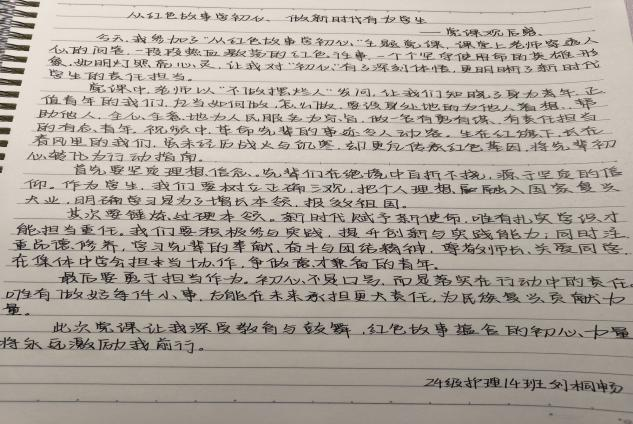 从红色故事学初心、做新时代有为学生
——党课观后感
今天我参加了“从红色故事学初心”主题党课，课堂上老师穿透人
心的问答，一段段热血激荡的红色往事，一个个坚守使命的英雄形
象，如明灯照亮心灵，让我对“初心”有了深刻体悟，更明晰了新时代
学生的责任担当。
党课中，老师以“不做摆烂人”发问，让我们知晓了身为青年，正
值青年的我们，应当如何做，怎么做，要设身处地的为他人着想、帮
助他人，全心全意地为人民服务为宗旨，做一名有勇有谋、有责任担当
的有志青年。视频中，革命先辈的事迹令人动容。生在红旗下，长在
春风里的我们，虽未经历战火与饥寒，却更应传承红色基因，将先辈初
心转化为行动指南。
首先要坚定理想信念。先辈们在绝境中百折不挠，源于坚定的信
仰。作为学生，我们要树立正确三观，把个人理想融入国家复兴
大业，明确学习是为了增长本领，报效祖国。
其次要锤炼过硬本领。新时代赋予新使命，唯有扎实学识才
能担当重任。我们要积极参与实践，提升创新与实践能力；同时注
重品德修养，学习先辈的奉献、奋斗与团结精神，尊敬师长、关爱同学，
在集体中学会担当协作，争做德才兼备的青年。
最后要勇于担当作为。初心不是口号，而是落实在行动中的责任。
唯有做好每件小事，方能在未来承担更大责任，为民族复兴贡献力
量。
此次党课让我深受教育与鼓舞，红色故事蕴含的初心、力量
将永远激励我前行。
24级护理14班 刘桐畅